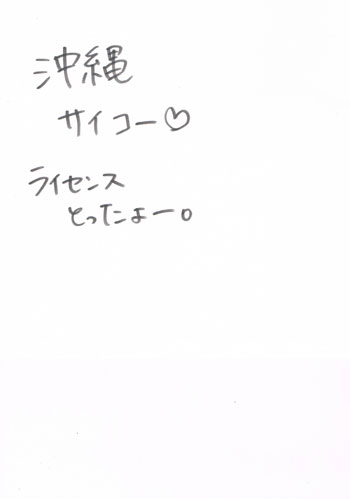 沖縄
サイコー♡
ライセンス
とったよー。